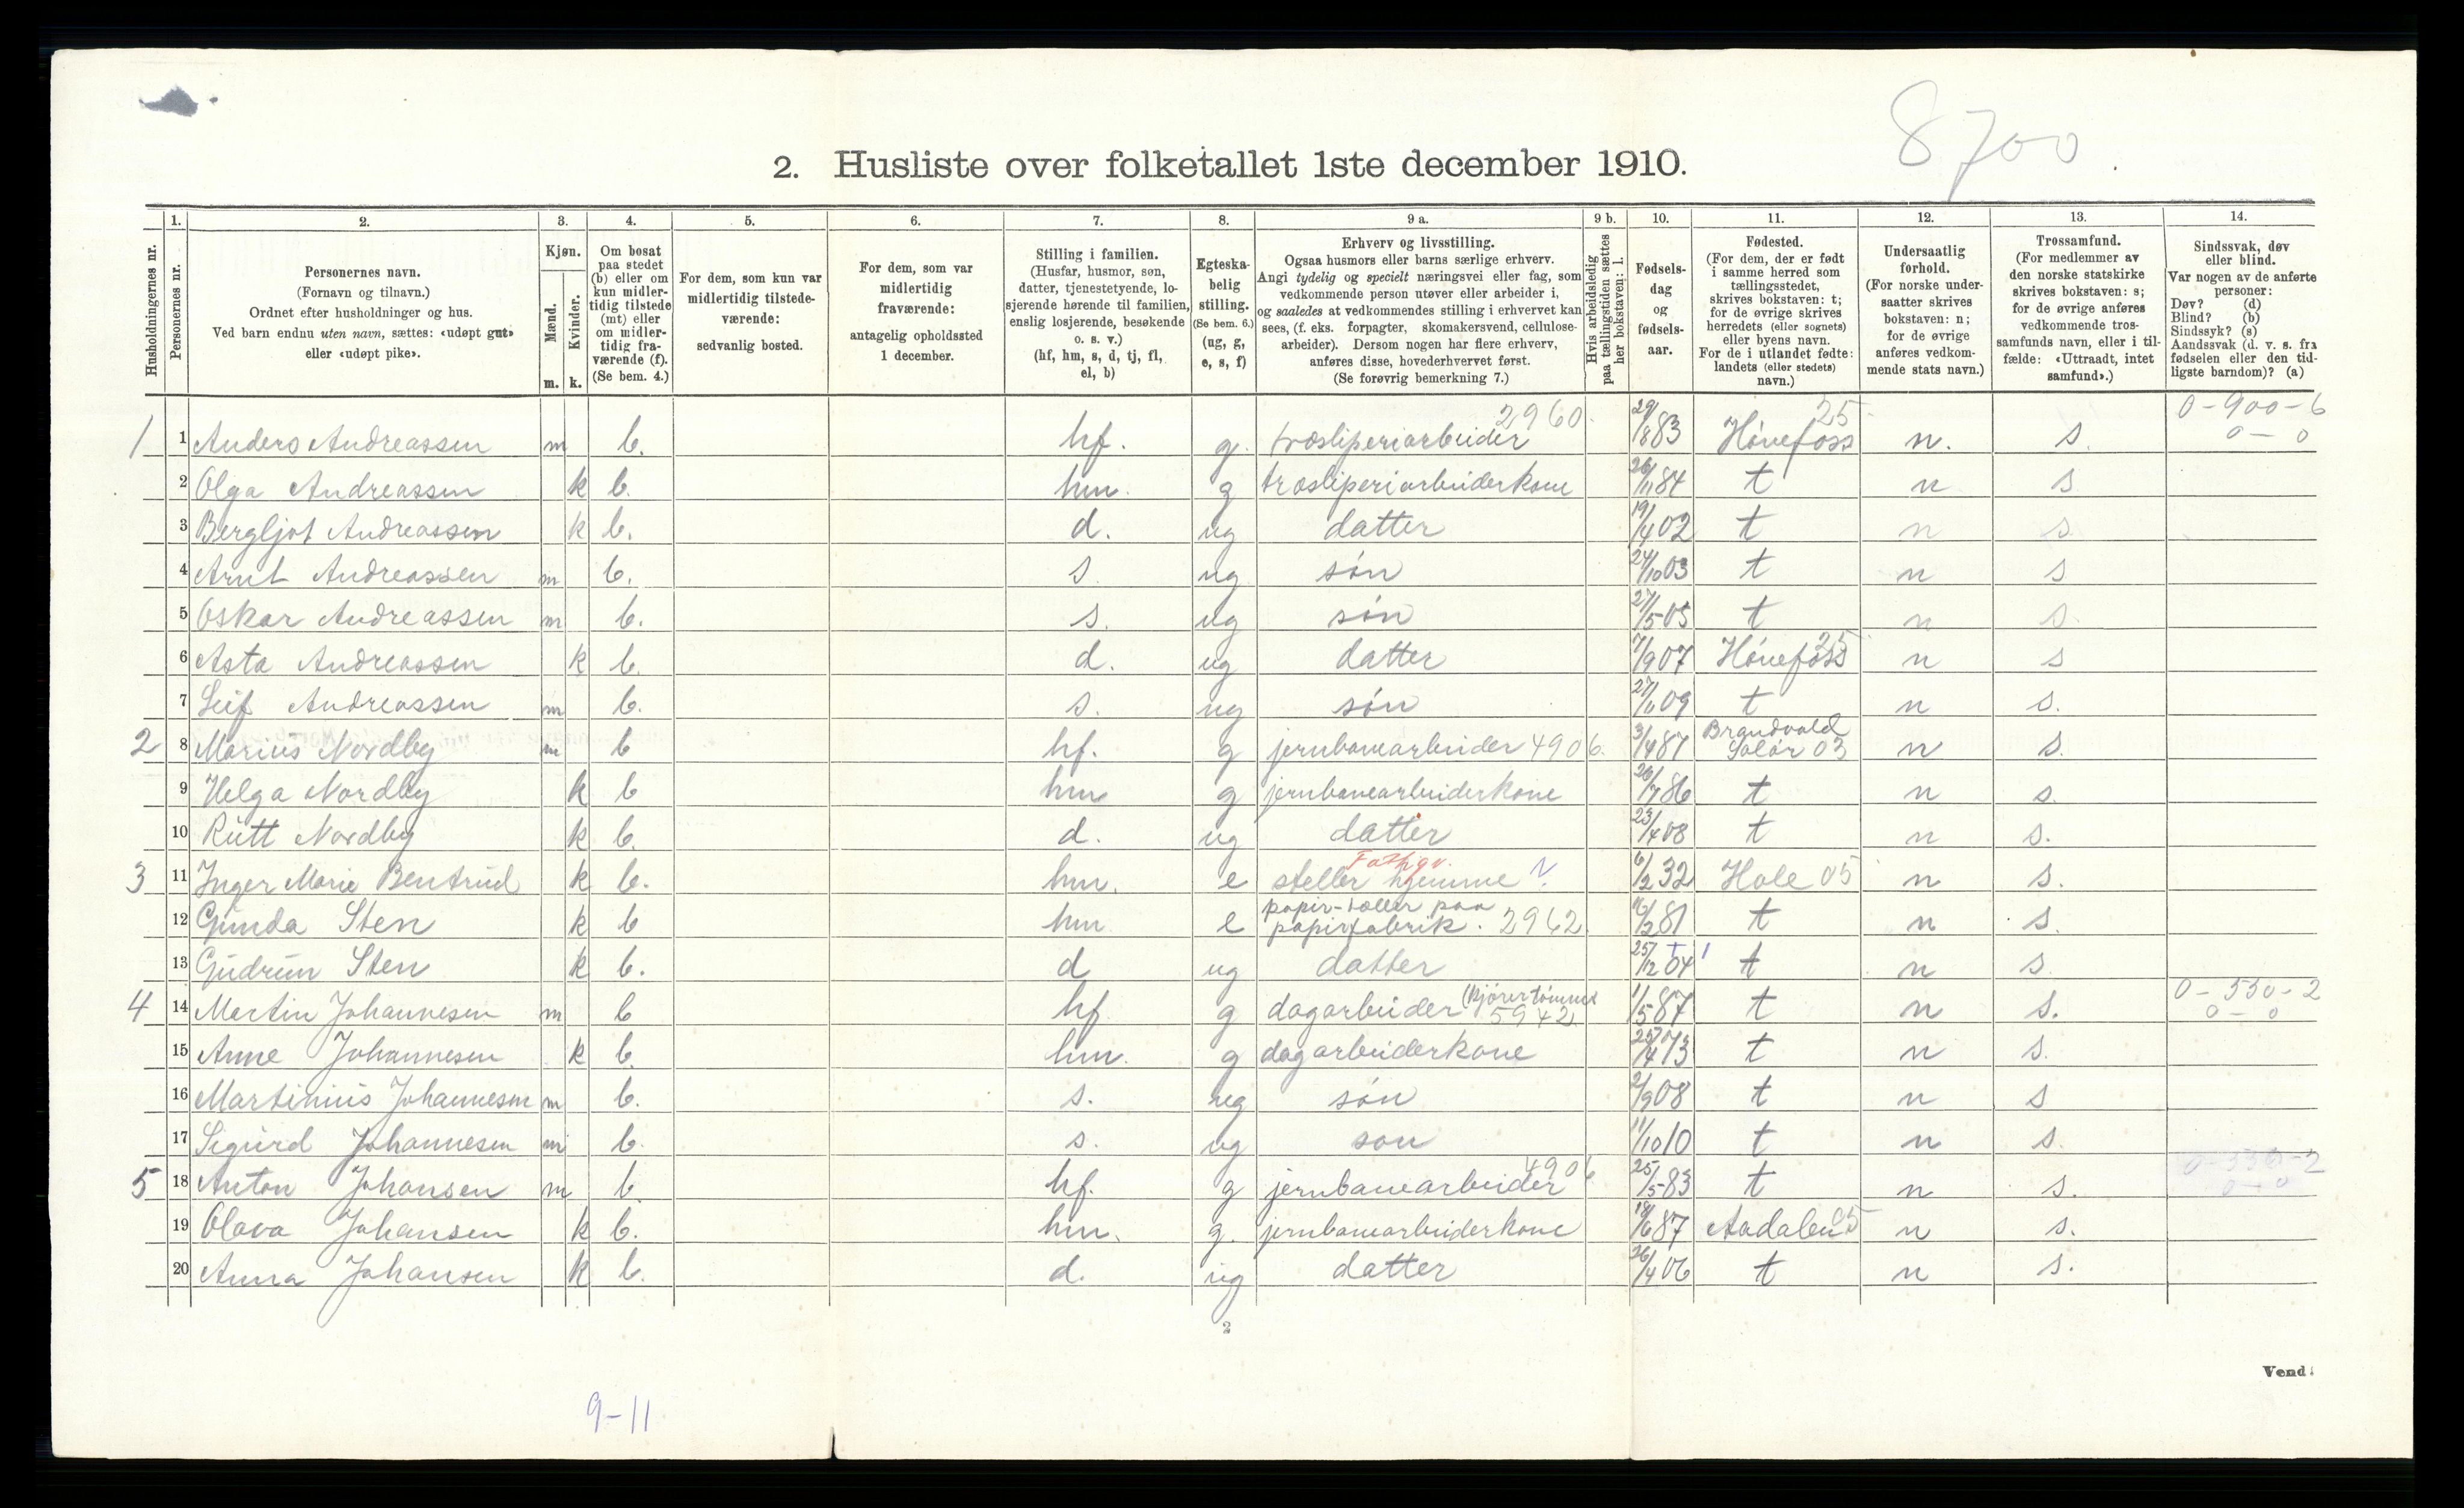 8700
2. Husliste over folketallet 1ste december 1910.
Husholdningernes nr.
1. Personernes nr.
2. Personernes navn.
(Fornavn og tilnavn.)
Ordnet efter husholdninger og hus.
Ved barn endnu uten navn, sættes: «udøpt gut»
eller «udøpt pike».
3. Kjøn.
Mænd. m.
Kvinder. k.
4. Om bosat
paa stedet
(b) eller om
kun midler-
tidig tilstede
(mt) eller
om midler-
tidig fra-
værende (f).
(Se bem. 4.)
5. For dem, som kun var
midlertidig tilstede-
værende:
sedvanlig bosted.
6. For dem, som var
midlertidig
fraværende:
antagelig opholdssted
1 december.
7. Stilling i familien.
(Husfar, husmor, søn,
datter, tjenestetyende, lo-
sjerende hørende til familien,
enslig losjerende, besøkende
o. s. v.)
(hf, hm, s, d, tj, fl,
el, b)
8. Egteska-
belig
stilling.
(Se bem. 6.)
(ug, g,
e, s, f)
9 a. Erhverv og livsstilling.
Ogsaa husmors eller barns særlige erhverv.
Angi tydelig og specielt næringsvei eller fag, som
vedkommende person utøver eller arbeider i,
og saaledes at vedkommendes stilling i erhvervet kan
sees, (f. eks. forpagter, skomakersvend, cellulose-
arbeider). Dersom nogen har flere erhverv,
anføres disse, hovederhvervet først.
(Se forøvrig bemerkning 7.)
9 b. Hvis arbeidsledig
paa tællingstiden sættes
her bokstaven: l.
10. Fødsels-
dag
og
fødsels-
aar.
11. Fødested.
(For dem, der er født
i samme herred som
tællingsstedet,
skrives bokstaven: t;
for de øvrige skrives
herredets (eller sognets)
eller byens navn.
For de i utlandet fødte:
landets (eller stedets)
navn.)
12. Undersaatlig
forhold.
(For norske under-
saatter skrives
bokstaven: n;
for de øvrige
anføres vedkom-
mende stats navn.)
13. Trossamfund.
(For medlemmer av
den norske statskirke
skrives bokstaven: s;
for de øvrige anføres
vedkommende tros-
samfunds navn, eller i til-
fælde: «Uttraadt, intet
samfund».)
14. Sindssvak, døv
eller blind.
Var nogen av de anførte
personer:
Døv? (d)
Blind? (b)
Sindssyk? (s)
Aandssvak (d. v. s. fra
fødselen eller den tid-
ligste barndom)? (a)
1 1 Anders Andreassen m b. hf. g. træsliperiarbeider 2960 29/8 83 Hönefoss 25 n. s. 0-900-6 0-0
2 Olga Andreassen k b. hm. g træsliperiarbeiderkone 26/11 84 t n s
3 Bergljot Andreassen k b. d. ug datter 19/4 02 t n s
4 Arnt Andreassen m b. s. ug sön 24/10 03 t n s
5 Oskar Andreassen m b. s. ug sön 27/5 05 t n s.
6 Asta Andreassen k b. d. ug datter 7/9 07 Hönefoss 25 n s
7 Leif Andreassen m b. s. ug sön 09 t n s.
2 8 Marius Nordby m b hf. g jernbanearbeider 4906. 3/4 87 Brandvold Solör 03 n s.
9 Helga Nordby k b hm g jernbanearbeiderkone 26/7 86 t n s.
10 Rutt Nordby k b. d. ug datter 23/4 08 t n s.
3 11 Inger Marie Bentrud k b. hm. e steller hjemme Fattigv. 6/2 32 Hole 05 n s.
12 Gunda Sten k b hm e papir-toller paa papirfabrik. 2962 16/2 81 t n s.
13 Gudrun Sten k b. d ug datter 25/12 04 t n s
4 14 Martin Johannesen m b hf g dagarbeider (kjörer tömmer 5942 1/5 87 t n s. 0-550-2 0-0
15 Anne Johannesen k b. hm. g dagarbeiderkone 25/4 73 t n s.
16 Martinius Johannesen m b. s. ug sön 2/9 08 t n s
17 Sigurd Johannesen m b. s. ug son 11/10 10 t n s.
5 18 Anton Johansen m b. hf. g jernbanearbeider 4906 25/5 83 t n s.
19 Olava Johansen k b. hm. g. jernbanearbeiderkone 18/6 87 Aadalen 05 n s.
20 Anna Johansen k b. d. ug datter 26/4 06 t n s.
2
Vend.
9-11